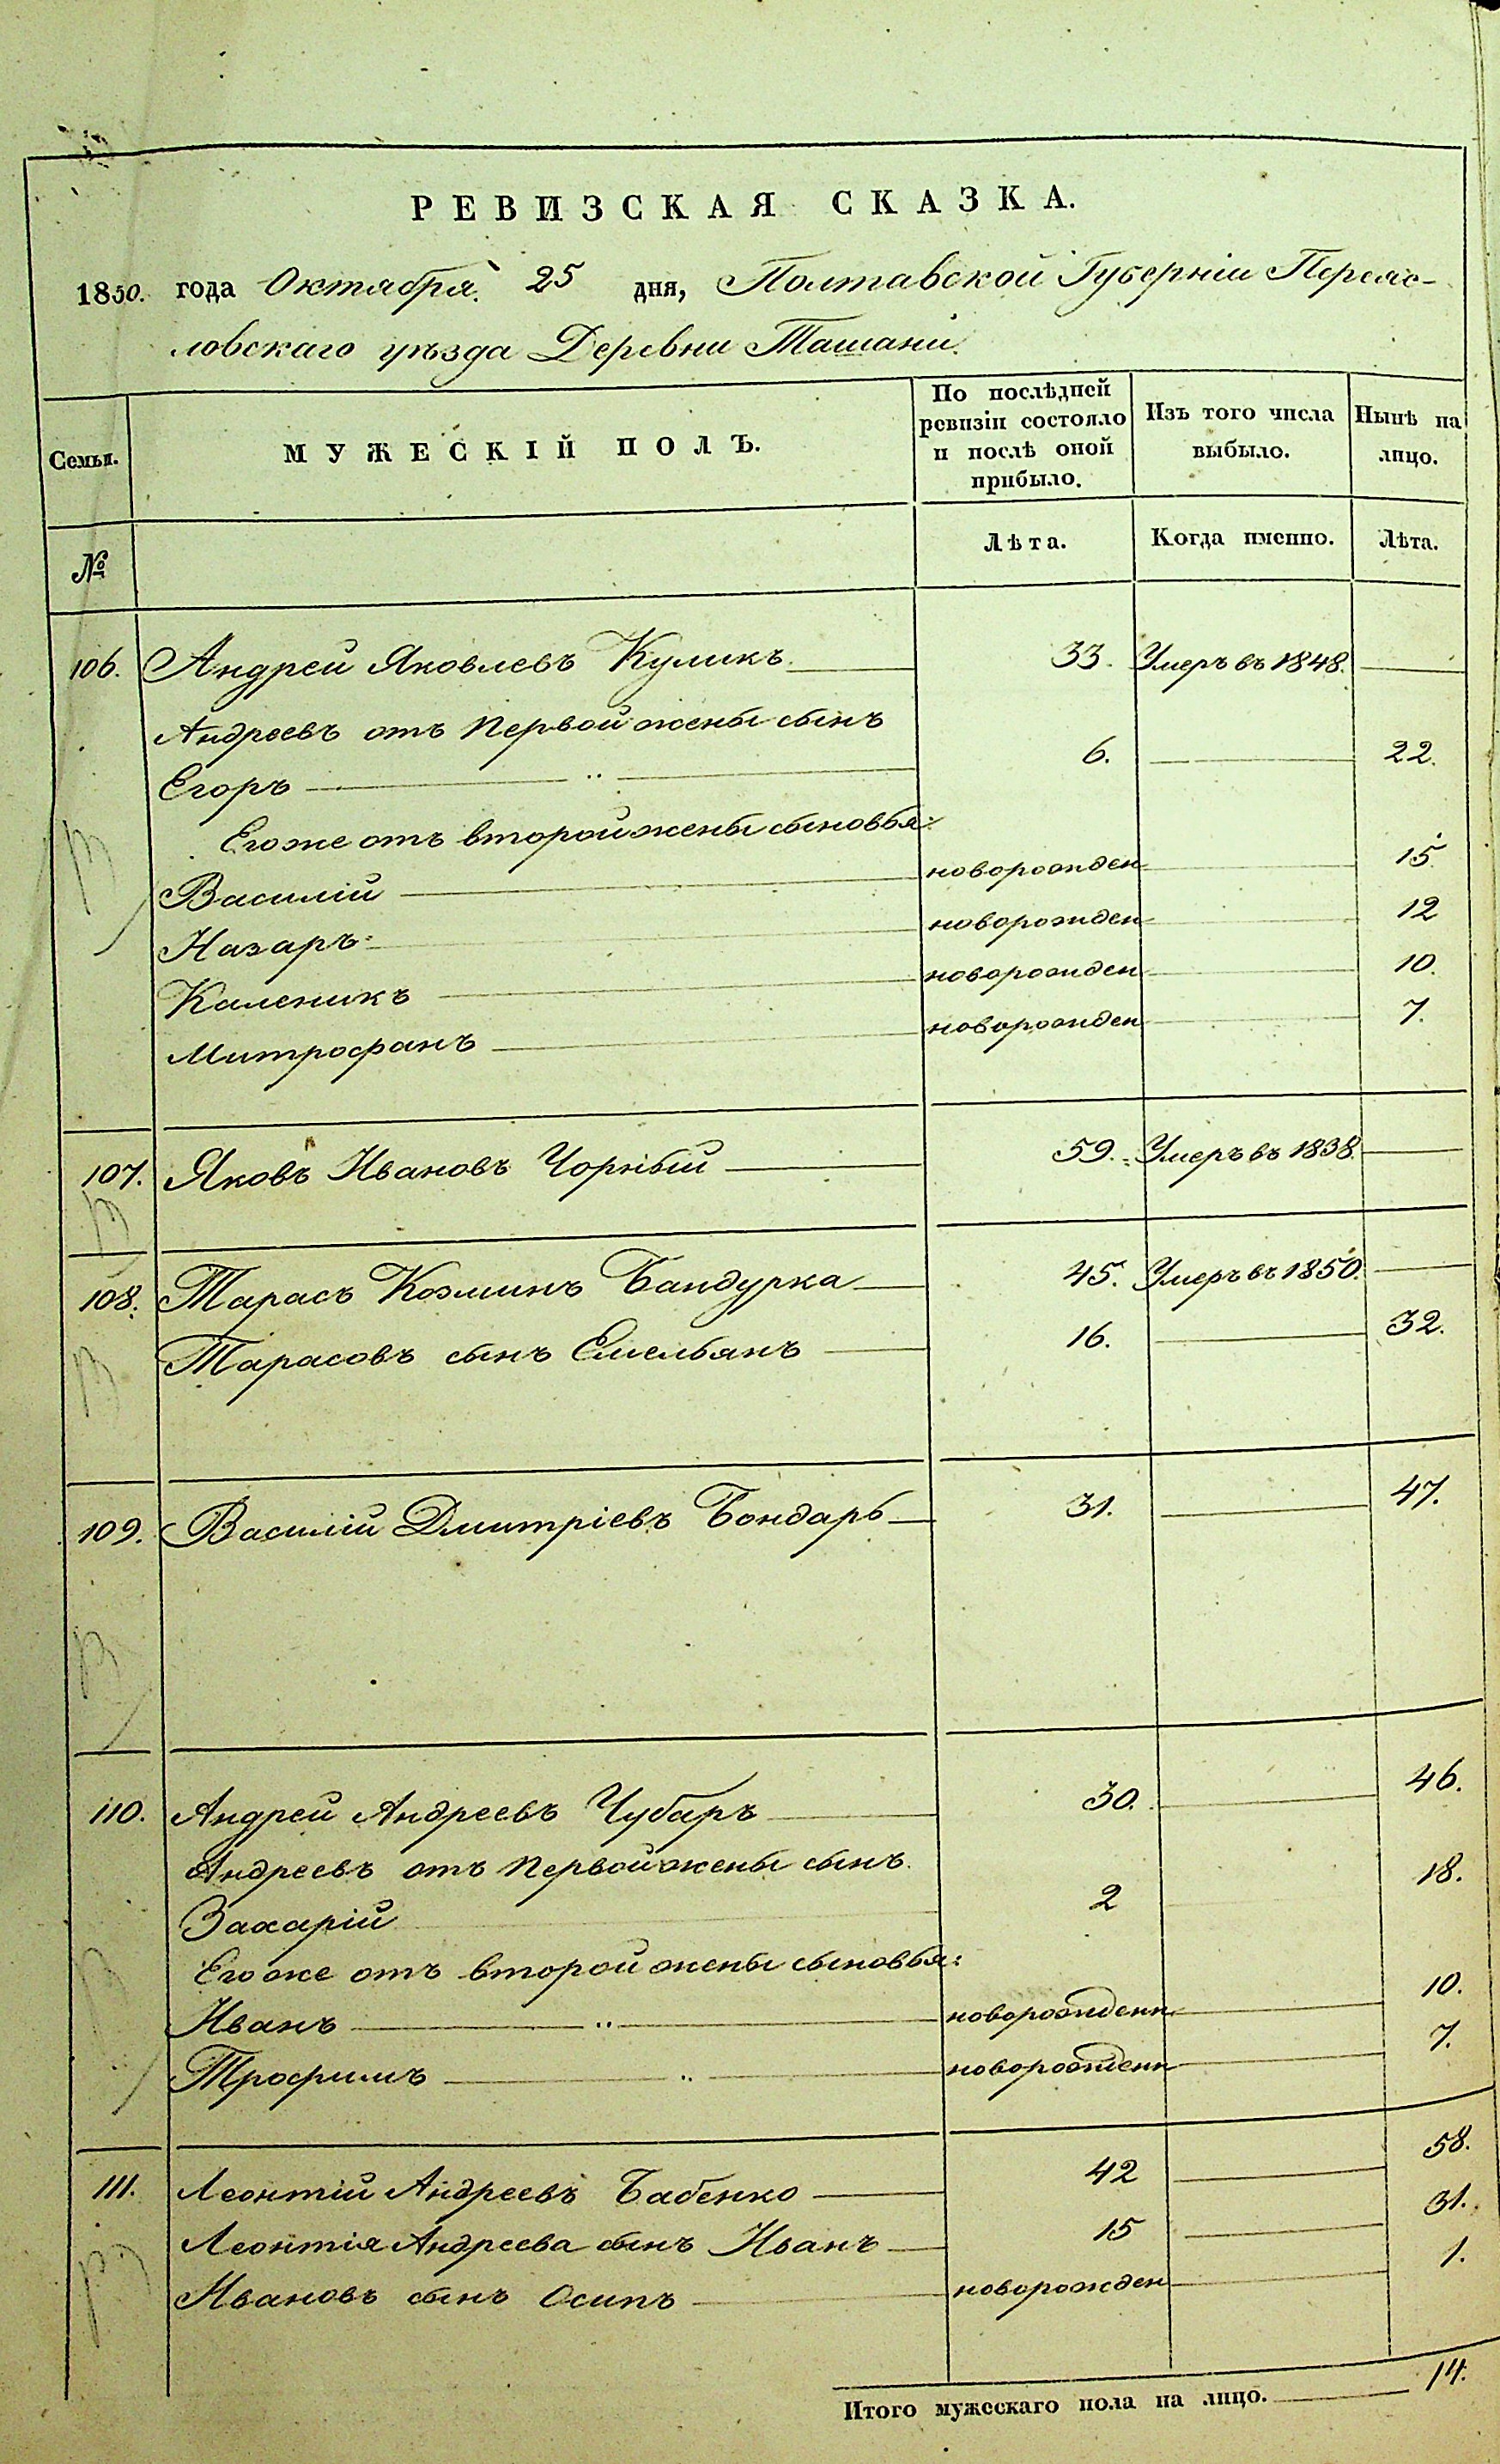 РЕВИЗСКАЯ СКАЗКА.
1850. года Октября. 25 дня, Полтавской Губерніи Переяс-
ловскаго уѣзда Деревни Ташани.
Семьи.
МУЖЕСКІЙ ПОЛЪ.
По послѣдней ревизіи состояло и послѣ оной прибыло.
Изъ того числа выбыло.
Нынѣ на лицо.
№ Лѣта. Когда именно. Лѣта.
106. Андрей Яковлевъ Куликъ 33. Умеръ въ 1848.
Андреевъ отъ первой жены сынъ
Егоръ 6. 22.
Его же отъ второй жены сыновья:
Василій новорожден 15.
Назаръ новорожден 12
Каленикъ новорожден 10.
Митрофанъ новорожден 7.
107. Яковъ Ивановъ Чорный 59. Умеръ въ 1838.
108. Тарасъ Козминъ Бандурка 45. Умеръ въ 1850.
Тарасовъ сынъ Емельянъ 16. 32.
109. Василій Дмитріевъ Бондарь 31. 47.
110. Андрей Андреевъ Чубаръ 30. 46.
Андреевъ отъ первой жены сынъ
Захарій 2 18.
Его же отъ второй жены сыновья:
Иванъ новорожденн 10.
Трофимъ новорожденн 7.
111. Леонтій Андреевъ Бабенко 42 58.
Леонтія Андреева сынъ Иванъ 15 31.
Ивановъ сынъ Осипъ новорожден 1.
Итого мужескаго пола на лицо. 14.